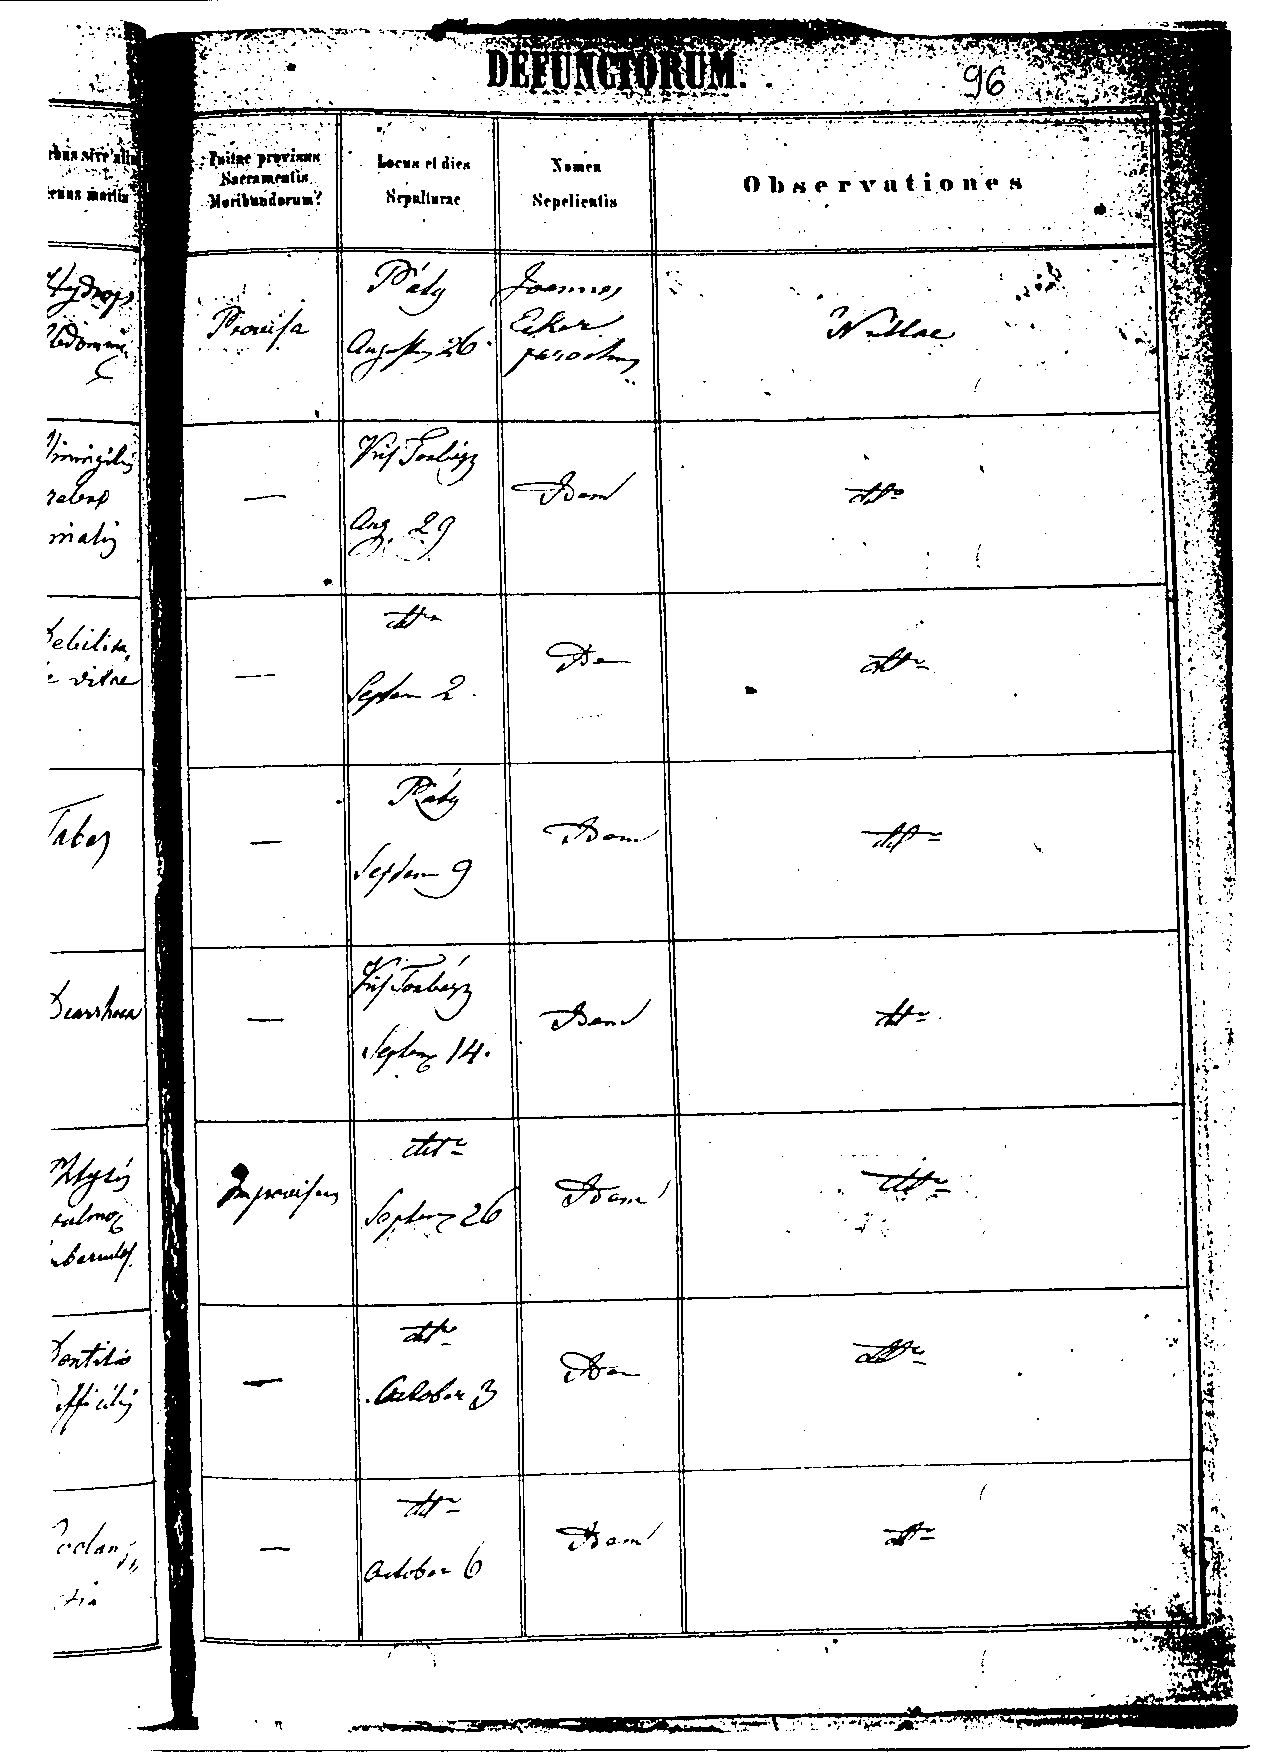 DEFUNCTORUM.
96
Fuitne provisus
Sacramentis
Moribundorum?
Locus et dies
Sepulturae
Nomen
Sepelientis
Observationes
Hydrops
Provisa
Páty
Augusti 26
Joannes
Eker
parochus
Nullae
Kis Torbágy
Aug. 29
Idem
dtto
Debilita
vitae
—
dtto
Septem 2
Idem
dtto
Tabes
—
Páty
Septem 9
Idem
dtto
Diarrhoea
—
Kis Torbágy
Septem 14.
Idem
dtto
Improvisus
dtto
Septem 26
Idem
dtto
Dentitio
difficilis
—
dtto
October 3
Idem
dtto
—
dtto
October 6
Idem
dtto